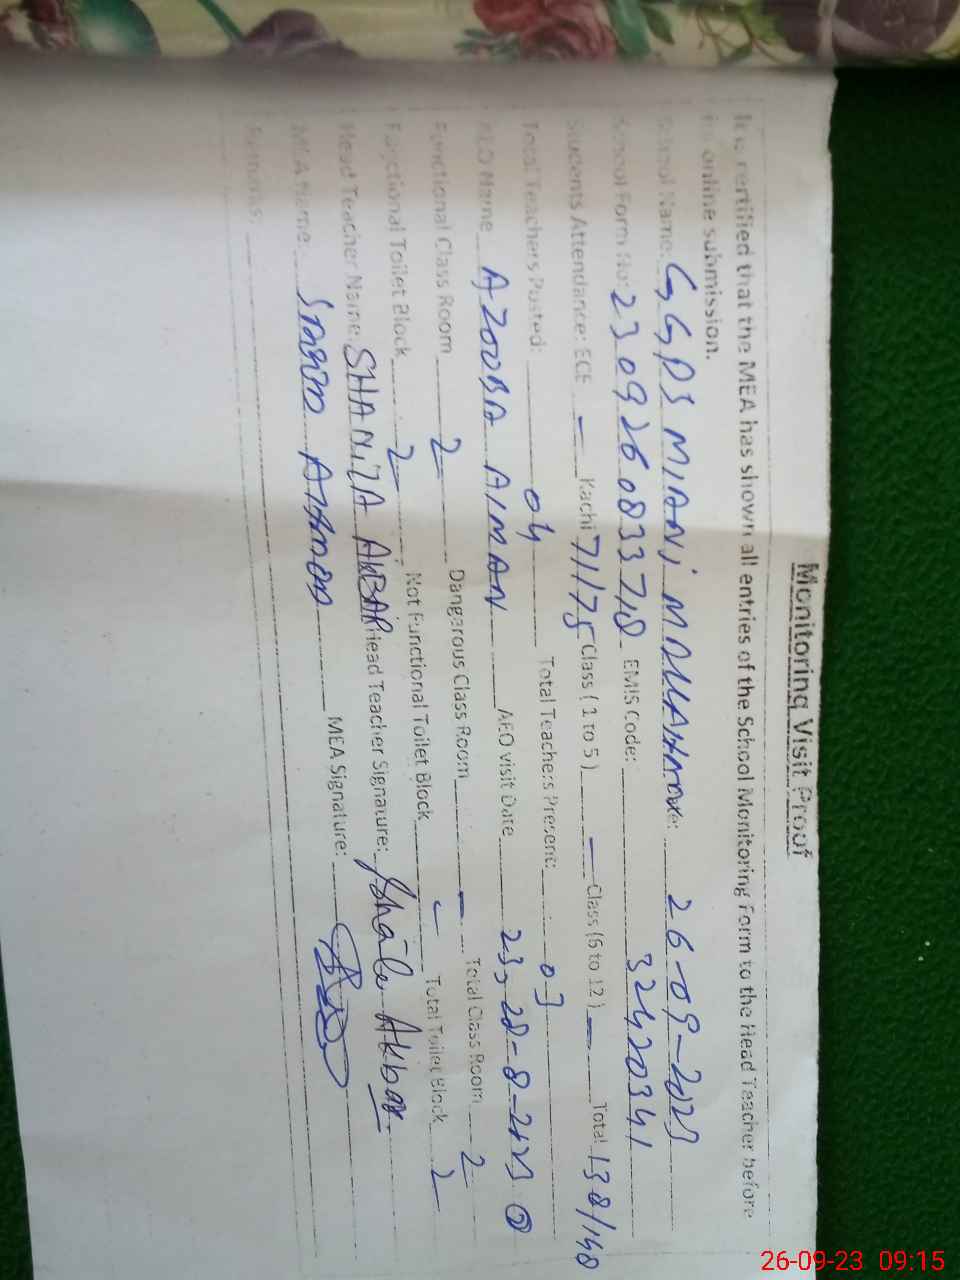 Monitoring Visit Proof
It is certified that the MEA has shown all entries of the School Monitoring Form to the Head Teacher before
its online submission.
School Name: GGPS MIANI MALLAHAN Date: 26-09-2023
School Form No: 2309260833718 EMIS Code: 32420341
Students Attendance: ECE — Kachi 71/75 Class ( 1 to 5 ) — Class (6 to 12 ) — Total 138/148
Total Teachers Posted: 04 Total Teachers Present: 03
AEO Name AZOOBA AIMAN AEO visit Date 23, 28-8-2023 2
Functional Class Room 2 Dangerous Class Room — Total Class Room 2
Functional Toilet Block 2 Not Functional Toilet Block — Total Toilet Block 2
Head Teacher Name: SHANILA AKBAR Head Teacher Signature: Akbar
MEA Name: MEA Signature:
Remarks:
26-09-23 09:15